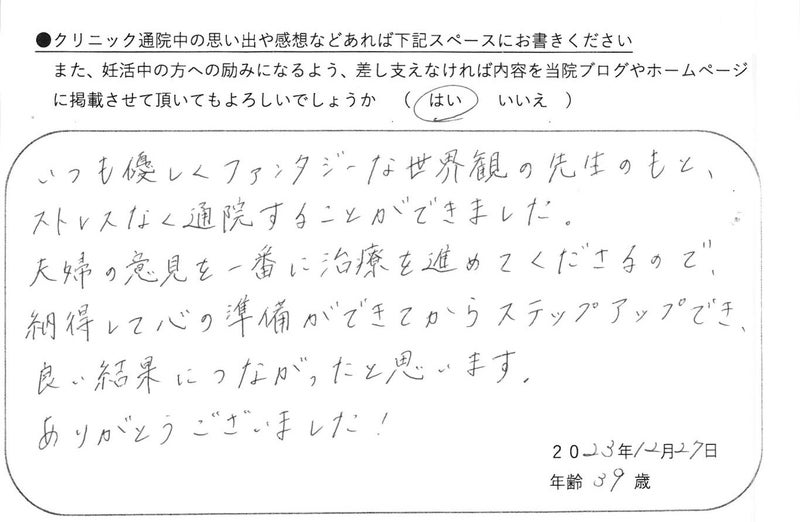 ●クリニック通院中の思い出や感想などあれば下記スペースにお書きください
また、妊活中の方への励みになるよう、差し支えなければ内容を当院ブログやホームページ
に掲載させて頂いてもよろしいでしょうか （ はい いいえ ）
いつも優しくファンタジーな世界観の先生のもと、
ストレスなく通院することができました。
夫婦の意見を一番に治療を進めてくださるので、
納得して心の準備ができてからステップアップでき、
良い結果につながったと思います。
ありがとうございました！
2023年12月27日
年齢 39 歳